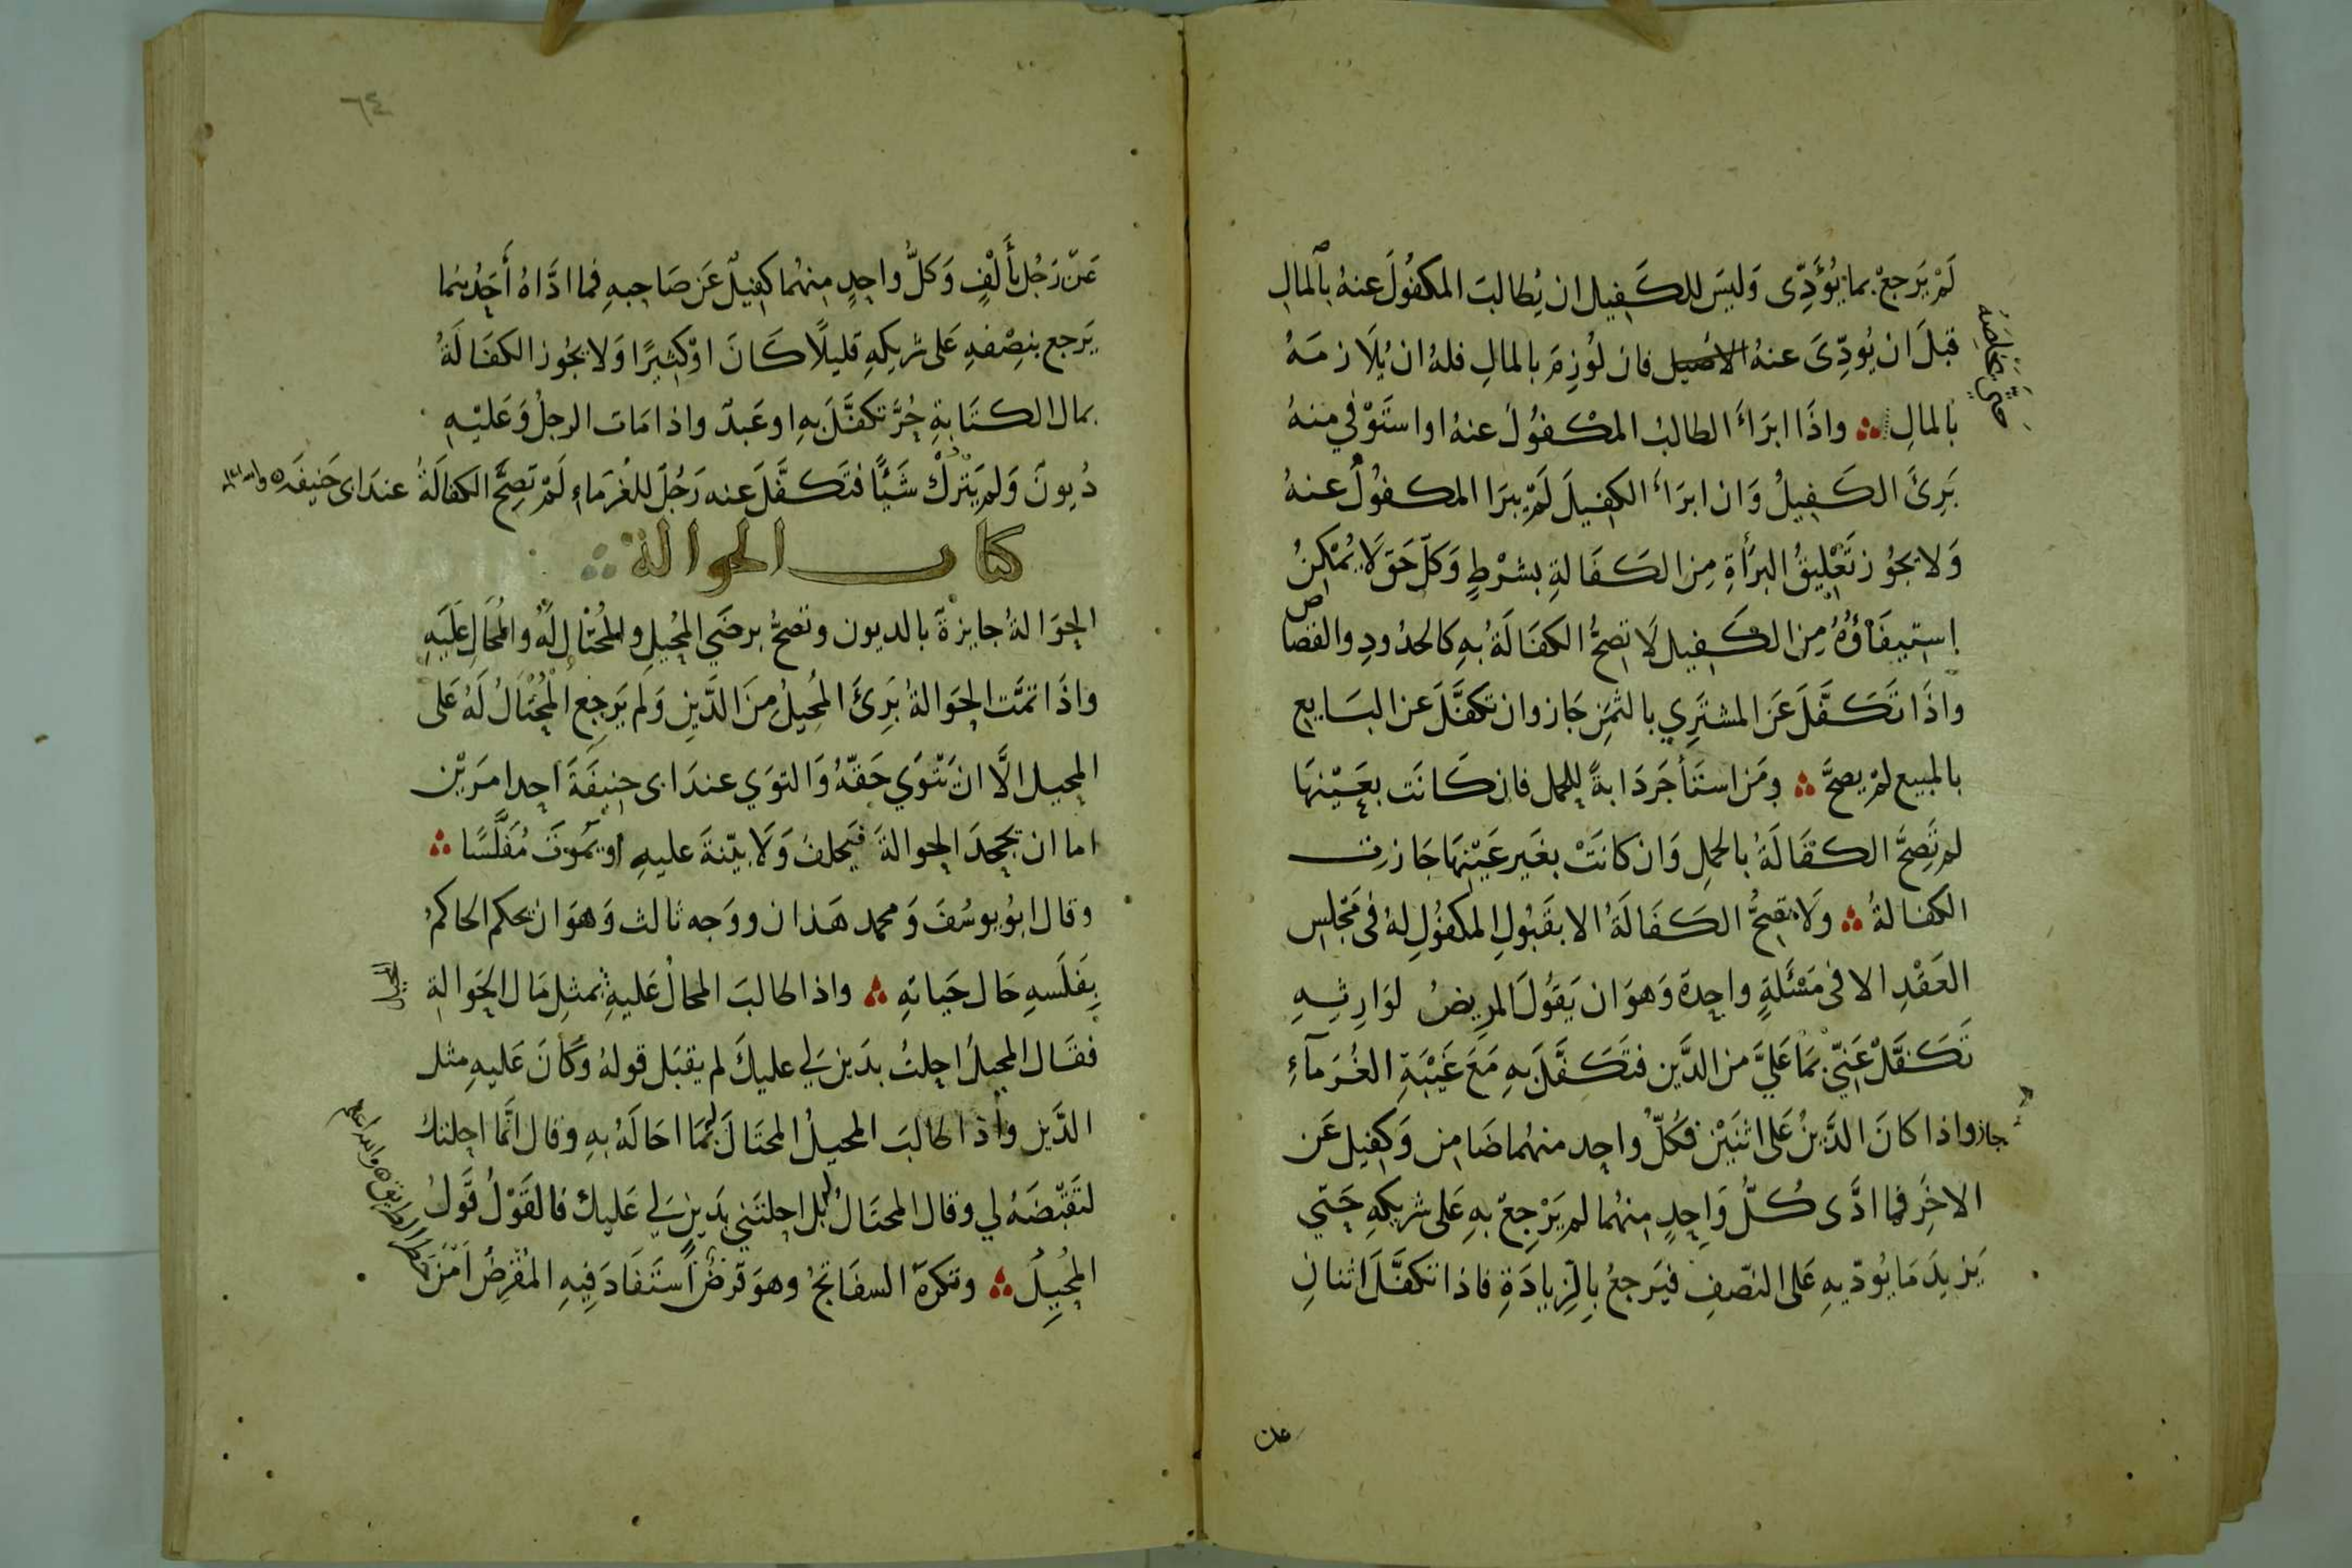 لَمْ يَرجعْ بما يُؤَدِّى وَليسَ للكَفِيل ان يُطالبَ المكفُولَ عنهُ بالمالِ
قبلَ ان يُودِّىَ عنهُ الاصيل فان لُوزِمَ بالمالِ فلهُ ان يُلَازمَهُ
بالمالِ ∴ واذَا ابرَاَ الطالبُ المكفُولَ عنهُ اواستَوْفي منهُ
بَرِئَ الكَفِيلُ وَان ابرَاَ الكفِيلَ لَمْ يبرَا المكفُولُ عنهُ
وَلا يجُوز تَعْلِيقُ البرَأةِ مِن الكَفَالةِ بشَرْطٍ وَكلّ حَق لَا يُمْكِنُ
اِستِيفَاؤُهُ مِن الكَفِيل لَا تصحُّ الكفَالَةُ بهِ كالحدُودِ والقصاص
واذَا تَكَفَّلَ عَنَ المشتَرِي بالثمَنِ جَاز وان تكفَّلَ عن البَايع
بالمبيع لمْ يصحَّ ∴ ومَن استَأجَرَ دَابةً للحمل فان كَانَت بعَيْنهَا
لم تَصِحَّ الكَفَالَةُ بالحملِ وَان كانَتْ بغَير عَيْنِهَا جَازت
الكفالةُ ∴ وَلَا تصِحُّ الكَفَالَةُ الا بقَبُولِ المكفُولِ لهُ فى مَجْلِس
العَقْدِ الا فى مَسْئَلَةٍ واحِدَةٍ وَهوَ ان يَقُولَ المرِيضُ لوَارِثِهِ
تَكَفَّلْ عَنِّي بمَا عَلَيَّ من الدَّين فتَكَفَّلَ بهِ مَعَ غَيْبَةِ الغُرَمآءِ
جاز واذا كانَ الدَّينُ عَلى اثنَيْن فكُلّ واحِد منهُما ضَامِن وَكفِيل عَن
الاخَرِ فما ادَّى كُلُّ وَاحِدٍ مِنهُما لم يَرْجِعْ بهِ عَلى شريكهِ حَتّي
يَزِيدَ مَا يُودّيهِ عَلى النصفِ فيَرجعُ بالزِيادَةِ فاذا تكفَّلَ اثنانِ
عن
٦٤
عَن رَجُل بأَلْفٍ وَكلُّ واحِدٍ مِنهُما كفِيلٌ عَن صَاحِبهِ فما ادَّاهُ أَحَدُهما
يَرجع بنِصْفهِ عَلى شريكِهِ قليلًا كَانَ اوْ كثِيرًا وَلا يجُوز الكفَالَةُ
بمال الكتَابةِ حُرٌّ تكفَّلَ بهِ اوعَبدٌ واذا مَات الرجلُ وَعَليْهِ
دُيونٌ وَلم يَترُكْ شَيْئًا فتَكَفَّلَ عنه رَجُلٌ للغُرَماءِ لَمْ تَصِحَّ الكفالَةُ عندَ ابى حَنيفَه
كتاب الحوالة ∴
الحِوَالةُ جايزةٌ بالديون وتصحُّ برضَي المُحِيلِ والمحُتالِ لَهُ والمُحَالِ عَلَيهِ
واذَا تمَّت الحِوَالةُ بَرِئَ المُحِيلُ مِنَ الدَّينِ وَلَم يَرجِع المُحْتَالُ لَهُ عَلى
المحيل الَّا ان يَتْوَي حَقّهُ وَالتوَي عندَ ابى حنِيفَةَ احِد امرَيْن
اما ان يجحدَ الحِوالةَ فيَحلفُ وَلَا بيّنةَ عليهِ او يَمُوتَ مُفَلَّسًا ∴
وقال ابوُ يوسُفَ وَمحمد هَذان ووَجه ثالث وَهوَ ان يحكم الحاكمُ
بِفَلَسهِ حَال حَياتهِ ∴ واذا طالبَ المحالُ عَليهِ بمثلِ مَال الحَوالةِ
فقَال المحيلُ احلتُ بدَين لي عليكَ لم يقبَل قولهُ وكَانَ عَليهِ مثل
الدَّين واذا طالبَ المحيلُ المحتَالَ بمَا احَالَهُ بهِ وقال انَّما احلتك
لتَقْبضَهُ لي وقال المحتَالُ بل احلتَني بدَينٍ لي عَليك فالقَوْلُ قَولُ
المُحِيلِ ∴ وتكرهَ السفَاتجُ وهوَ قرضٌ استَفَادَ فِيهِ المُقْرِضُ اَمْنَ